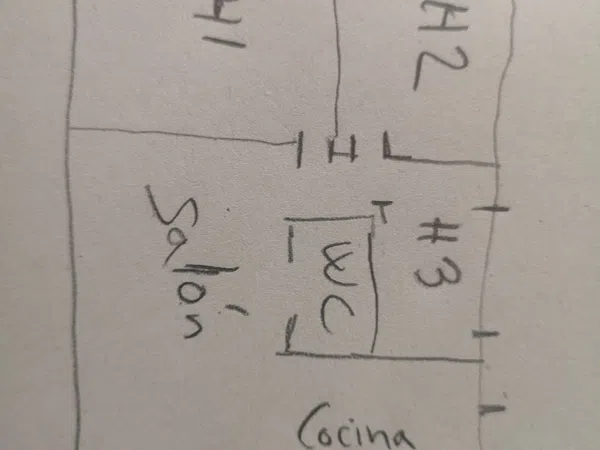 H1
H2
Salón
WC
H3
Cocina